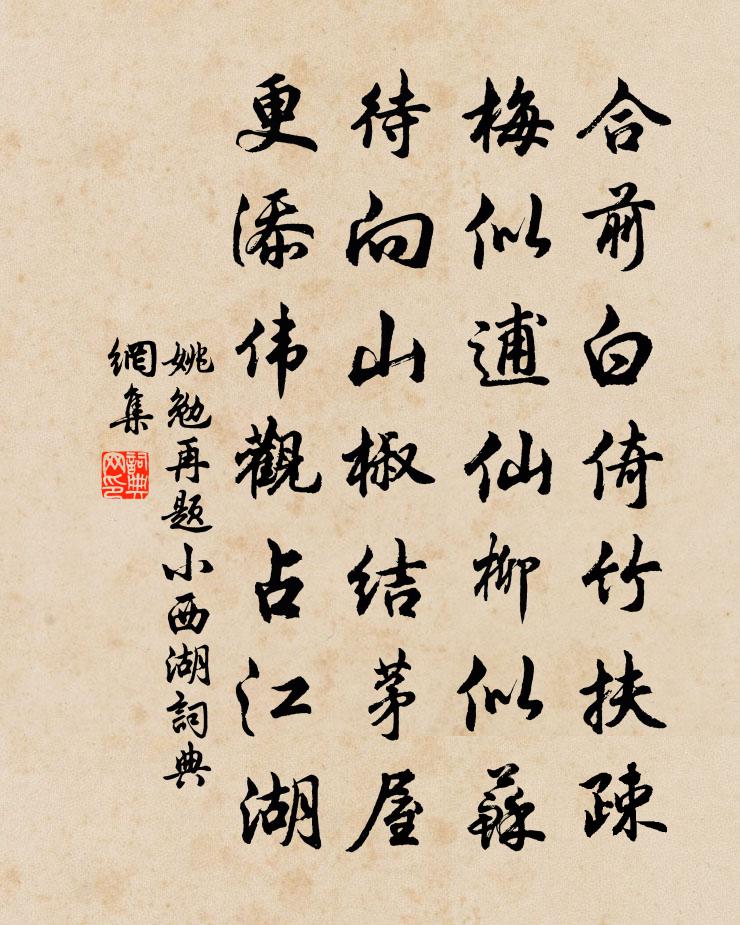 合前白倚竹扶疎
梅似逋仙柳似蘇
待向山椒结茅屋
更添伟觀占江湖
姚勉再题小西湖詞典
網集
詞典
网印